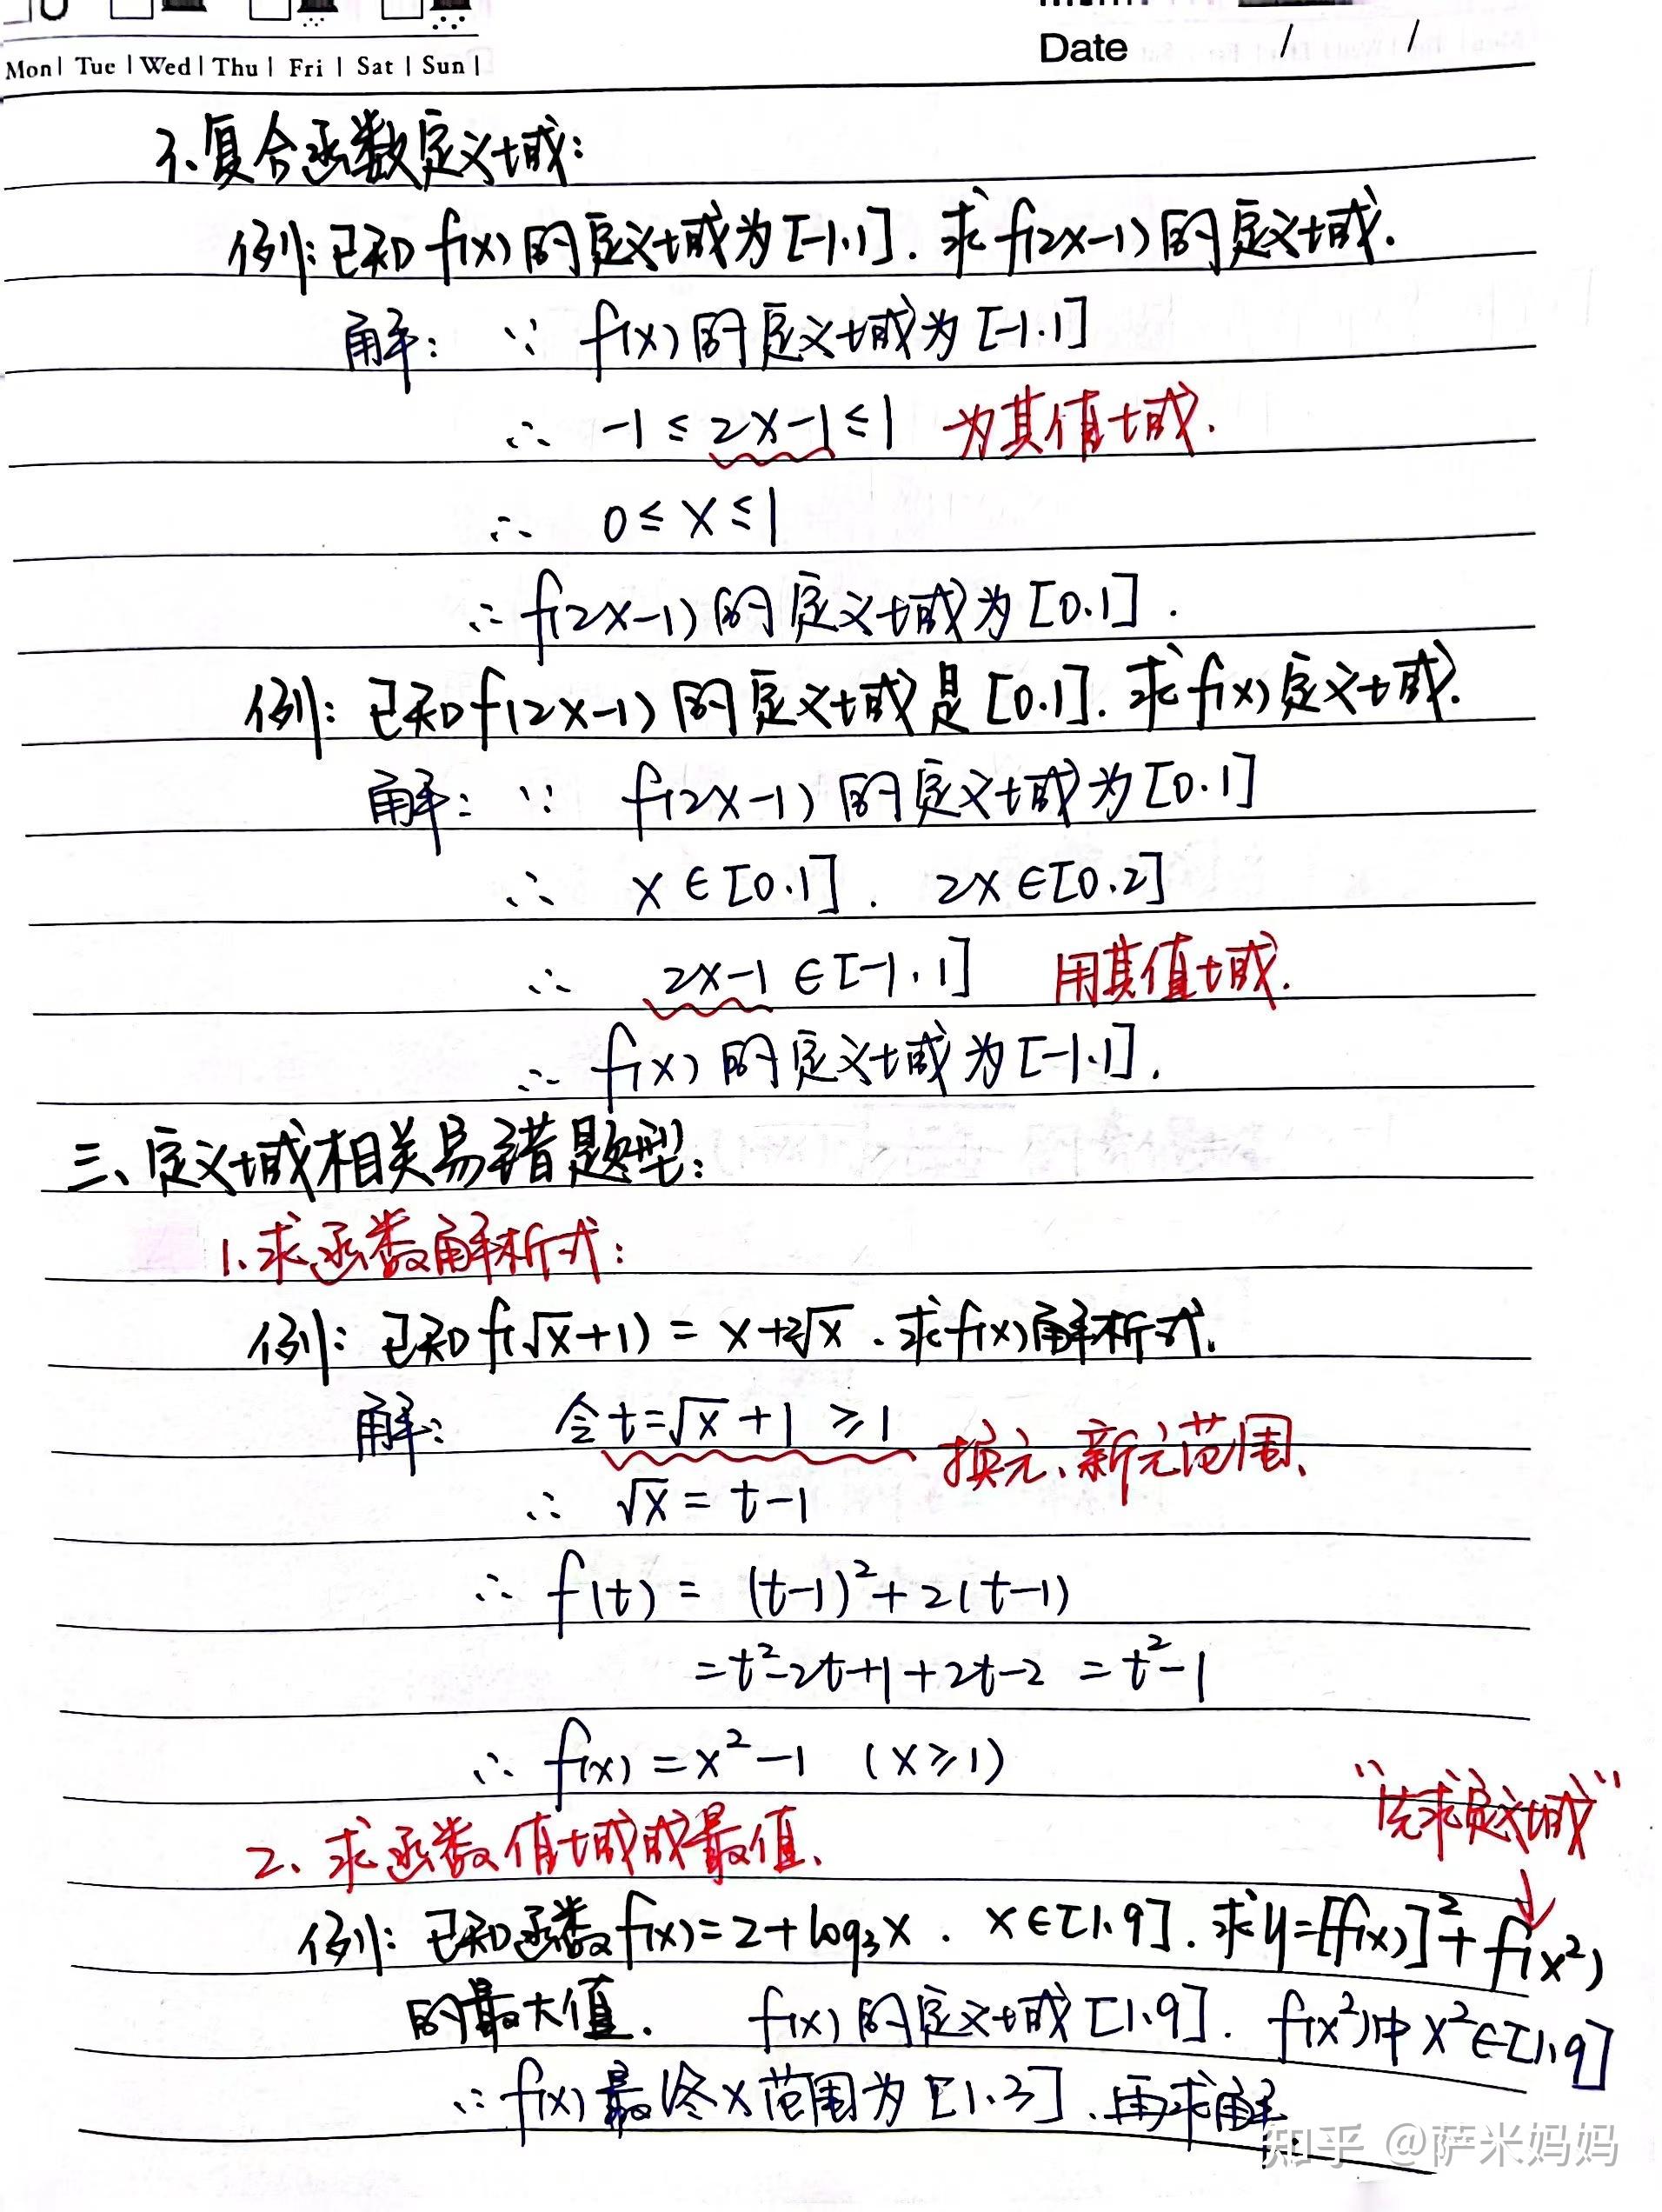 Mon | Tue | Wed | Thu | Fri | Sat | Sun |
Date / /
3、复合函数定义域:
例:已知f(x)的定义域为[-1,1].求f(2x-1)的定义域.
解: ∵ f(x)的定义域为[-1,1]
∴ -1≤2x-1≤1 为其值域.
∴ 0≤x≤1
∴ f(2x-1)的定义域为[0,1].
例:已知f(2x-1)的定义域是[0,1].求f(x)定义域.
解: ∵ f(2x-1)的定义域为[0,1]
∴ x∈[0,1]. 2x∈[0,2]
∴ 2x-1∈[-1,1] 用其值域.
∴ f(x)的定义域为[-1,1].
三、定义域相关易错题型:
1、求函数解析式:
例:已知f(√x+1)=x+2√x.求f(x)解析式.
解: 令t=√x+1≥1 换元、新元范围、
∴ √x=t-1
∴ f(t)=(t-1)²+2(t-1)
=t²-2t+1+2t-2=t²-1
∴ f(x)=x²-1 (x≥1)
"先求定义域"
2、求函数值域或最值、
例:已知函数f(x)=2+log₃x. x∈[1,9].求y=[f(x)]²+f(x²)
的最大值. f(x)的定义域[1,9]. f(x²)中x²∈[1,9]
∴ f(x)最终x范围为[1,3].再求解.
知乎 @萨米妈妈